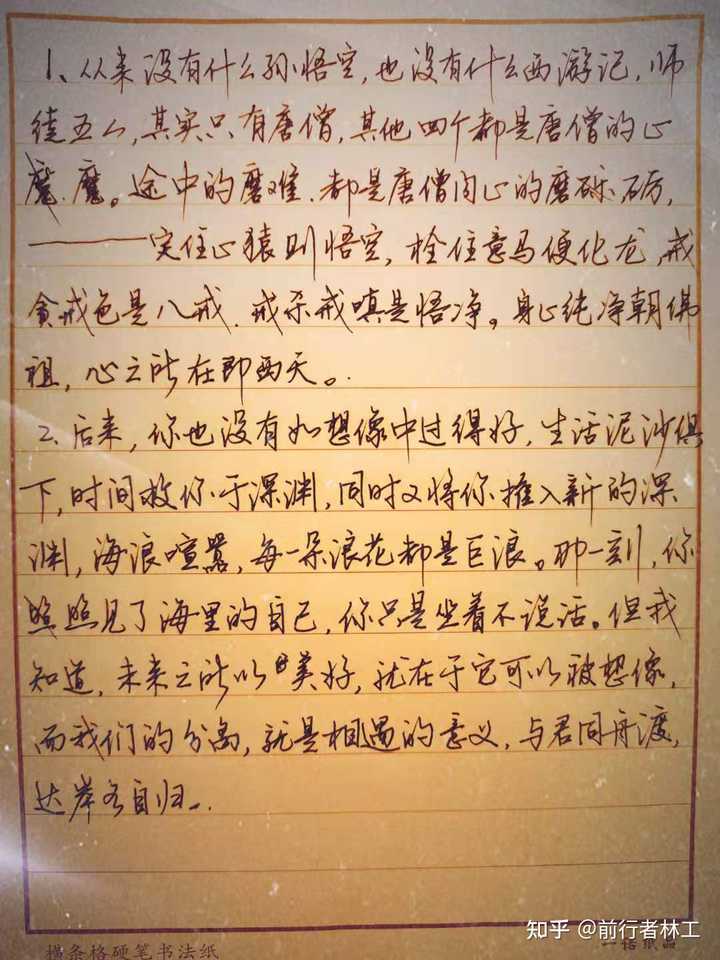 1、从来没有什么孙悟空，也没有什么西游记，师
徒五人，其实只有唐僧，其他四个都是唐僧的心
魔.魔。途中的磨难.都是唐僧问心的磨砾砺，
———定住心猿则悟空，栓住意马便化龙，戒
贪戒色是八戒.戒杀戒嗔是悟净。身心纯净朝佛
祖，心之所在即西天。.
2、后来，你也没有如想像中过得好，生活泥沙俱
下，时间救你于深渊，同时又将你推入新的深
渊，海浪喧嚣，每一朵浪花都是巨浪。那一刻，你
照照见了海里的自己，你只是坐着不说话。但我
知道，未来之所以美好，就在于它可以被想像，
而我们的分离，就是相遇的意义，与君同舟渡，
达岸各自归..
横条格硬笔书法纸
一语纸品
知乎 @前行者林工